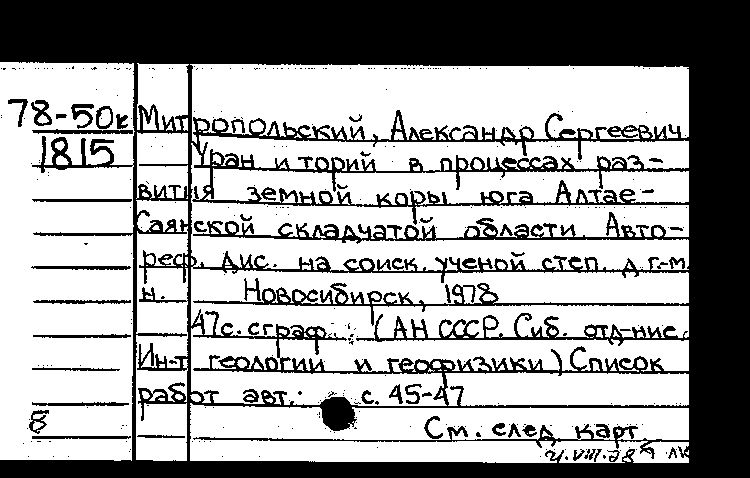 78-50к Митропольский, Александр Сергеевич
1815 Уран и торий в процессах раз-
вития земной коры юга Алтае-
Саянской складчатой области. Авто-
реф. дис. на соиск. ученой степ. д. г.-м.
н. Новосибирск, 1978
47с. с граф. (АН СССР. Сиб. отд-ние.
Ин-т геологии и геофизики) Список
работ авт.: с. 45-47
8 См. след. карт.